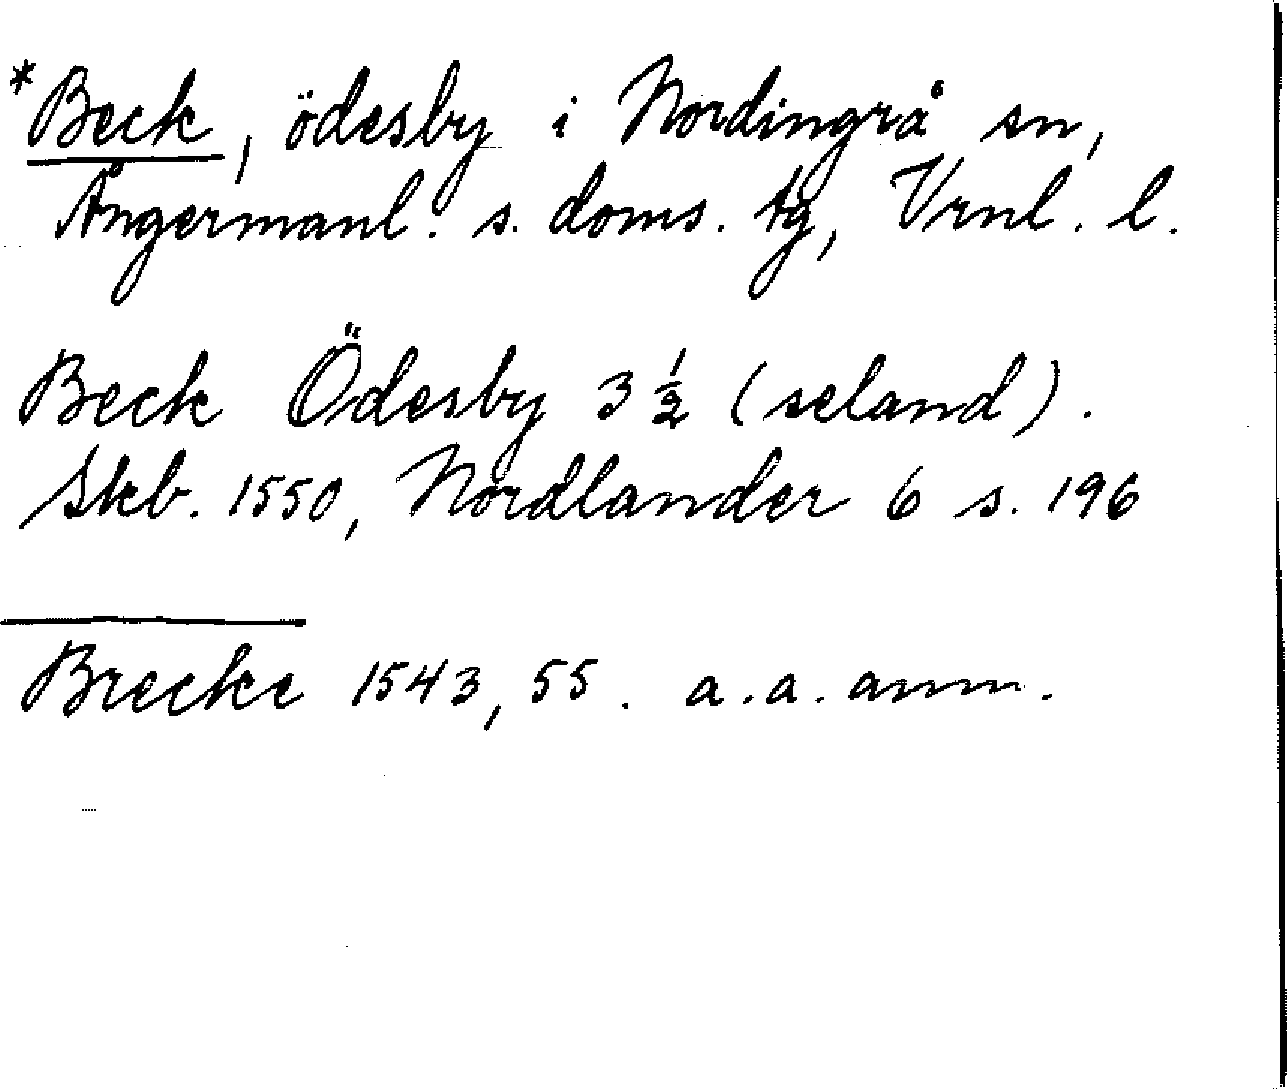 *Beck, ödesby i Nordingrå sn,
Ångermanl. s. doms. tg, Vrnl. l.
Beck Ödesby 3 1/2 (seland).
Skb. 1550, Nordlander 6 s. 196
Brecke 1543, 55. a.a. anm.